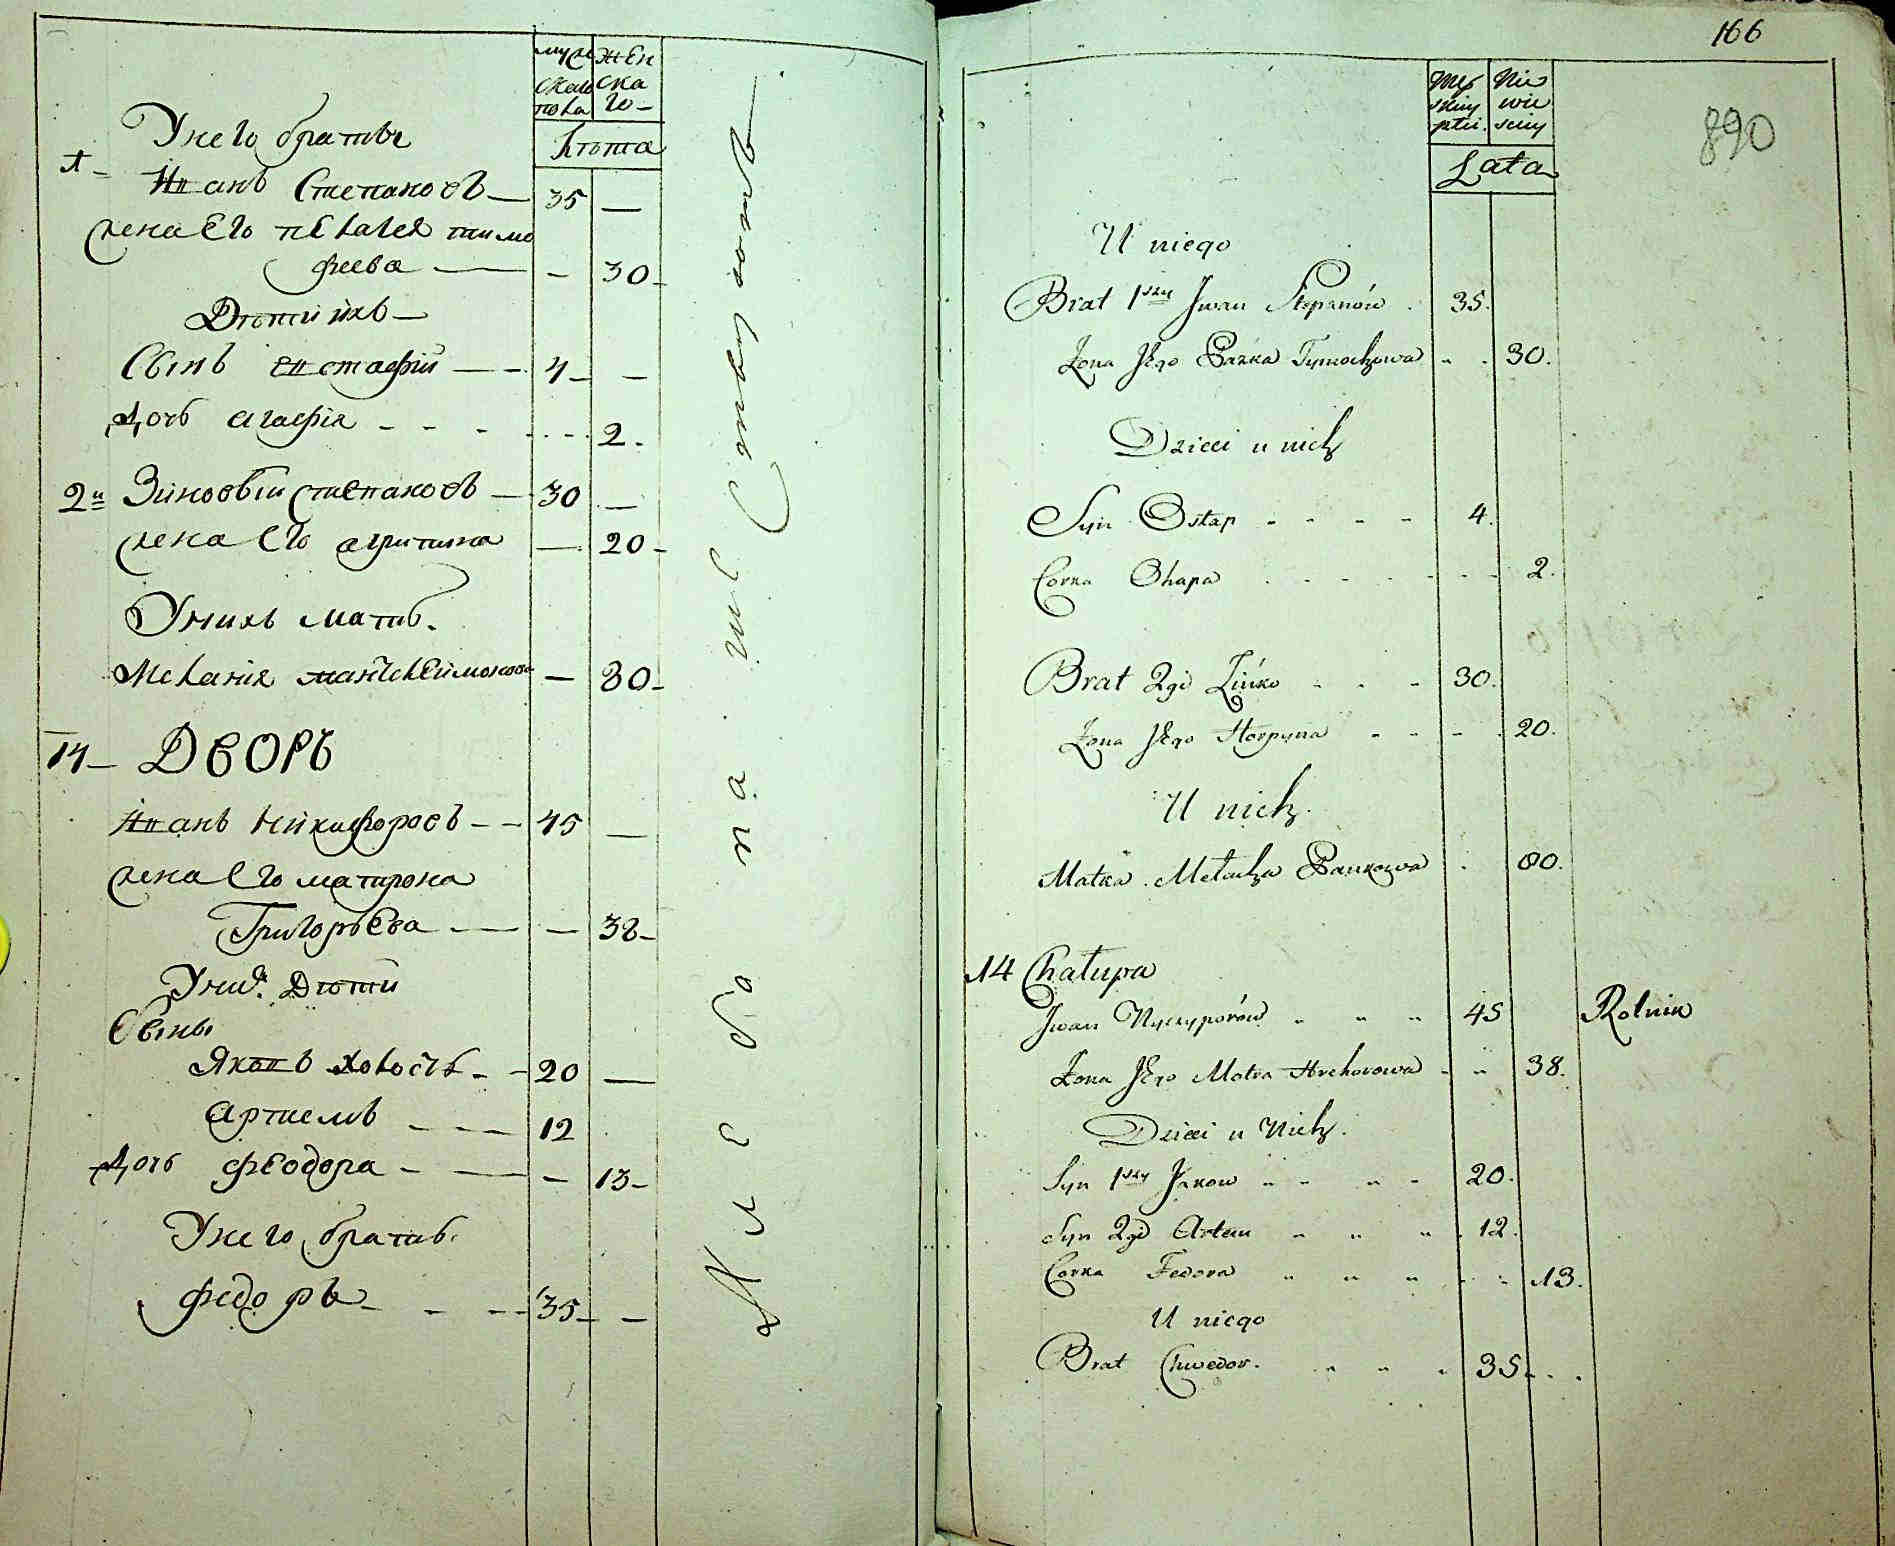 муж жен
скаго ска
пола го
Лѣта
У него братья
1 Иванъ Степановъ 35 —
жена Его пелагея тимо
феева — 30
Дѣти ихъ
Сынъ Евстафій 4 —
Дочь агафія 2
2й Зиновѣй Степановъ 30 —
жена Его агрипина — 20
У нихъ мать
Меланія — 80
14 Дворъ
Иванъ Никифоровъ 45 —
жена Его матрона
Григорьева — 38
У них Дѣти
Сыны
Яковъ холостъ 20 —
Артиемъ 12
Дочь феодора — 13
У него братъ
федоръ 35 —
166
890
Męz Nie
skiey wie
płci sciey
Lata
U niego
Brat 1szy Jwan Stepanów 35
Żona Jego Pazka Tymochowa 30
Dzieci u nich
Syn Ostap 4
Corka Ohapa 2
Brat 2gi Zińko 30
Żona Jego Horpyna 20
U nich
Matka Metacha Pankowa 80
14 Chałupa
Jwan Nyczyporów 45 Rolnik
Żona Jego Motra Hrehorowa 38
Dzieci u Nich
Syn 1szy Jakow 20
Syn 2gi Artem 12
Corka Fedora 13
U niego
Brat Chwedor 35